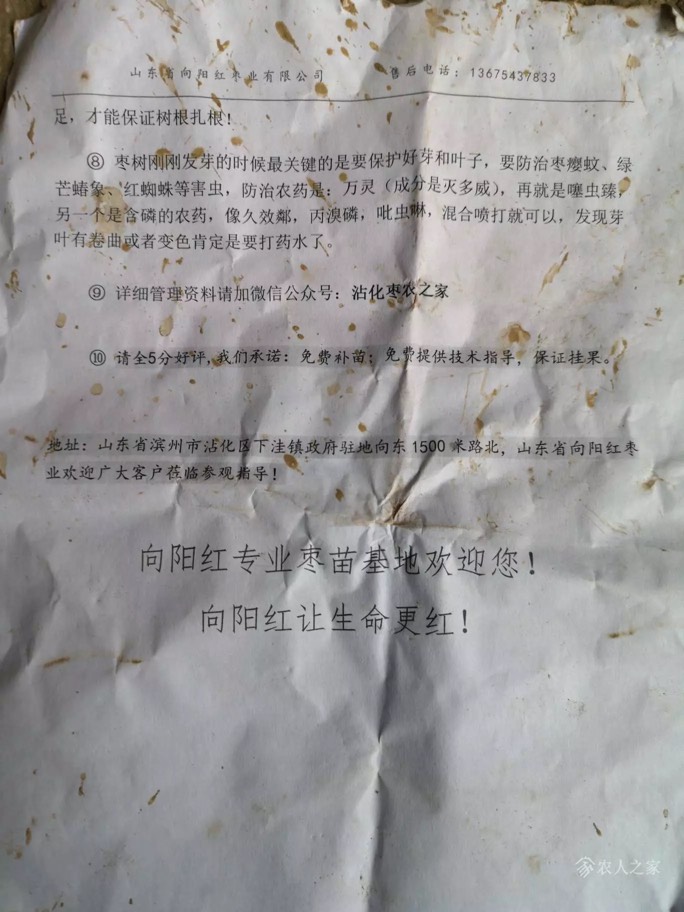 山东省向阳红枣业有限公司 售后电话：13675437833
足，才能保证树根扎根！
⑧ 枣树刚刚发芽的时候最关键的是要保护好芽和叶子，要防治枣瘿蚊、绿
芒蝽象、红蜘蛛等害虫，防治农药是：万灵（成分是灭多威），再就是噻虫臻，
另一个是含磷的农药，像久效鄰，丙溴磷，吡虫啉，混合喷打就可以，发现芽
叶有卷曲或者变色肯定是要打药水了。
⑨ 详细管理资料请加微信公众号：沾化枣农之家
⑩ 请全5分好评，我们承诺：免费补苗；免费提供技术指导，保证挂果。
地址：山东省滨州市沾化区下洼镇政府驻地向东1500米路北，山东省向阳红枣
业欢迎广大客户莅临参观指导！
向阳红专业枣苗基地欢迎您！
向阳红让生命更红！
农人之家